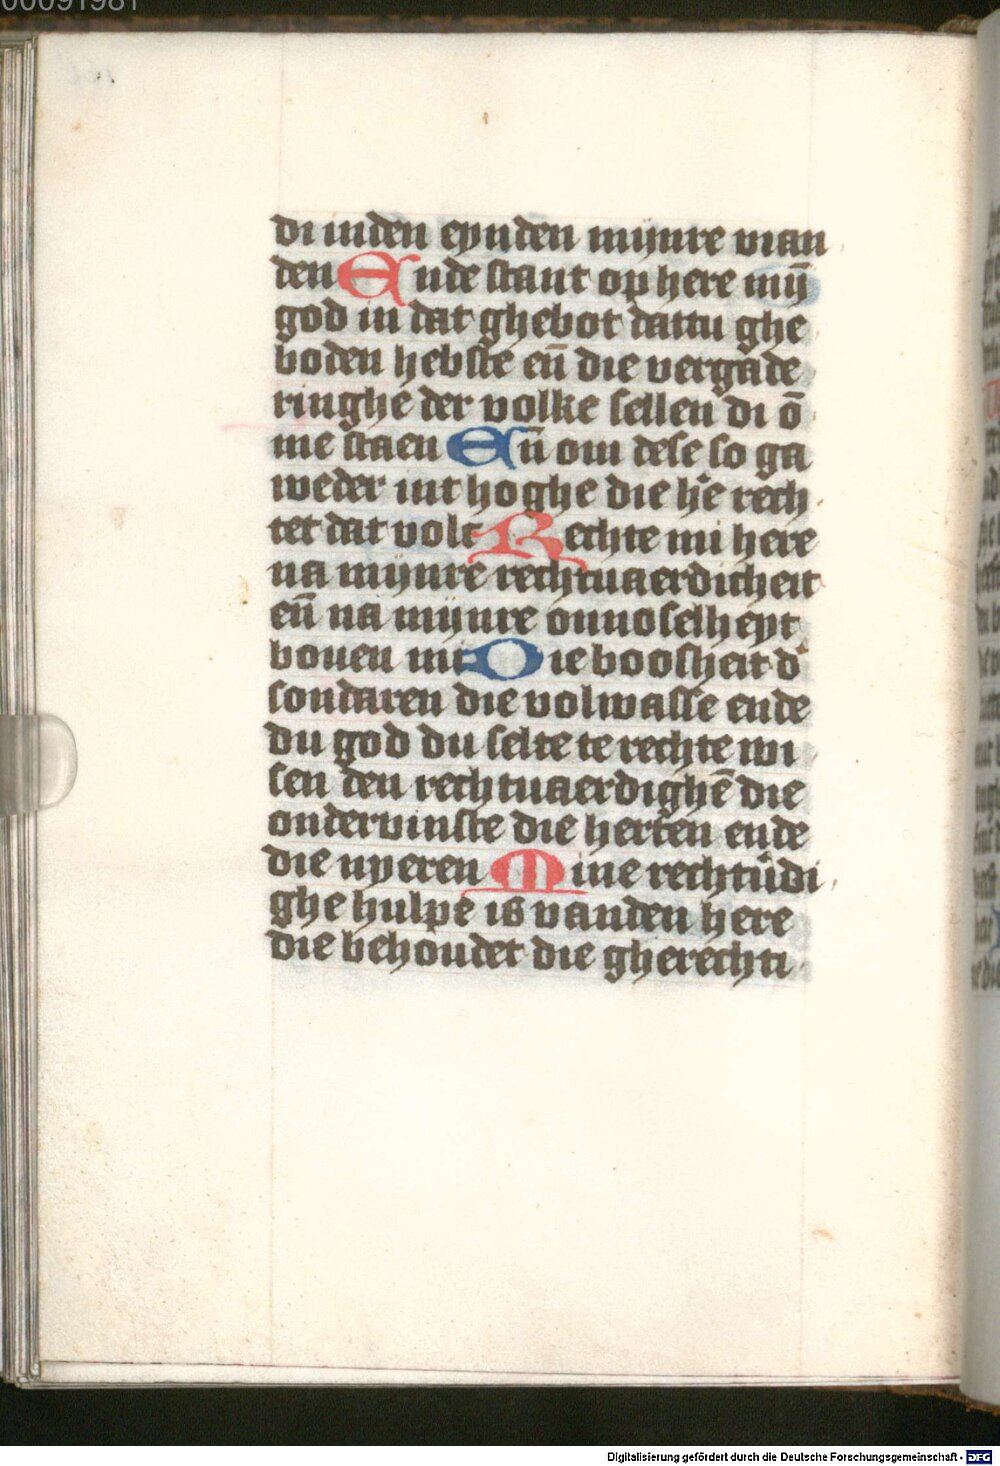 00091981
di inden eynden mijnre vian
den Ende staut op here mij̄
god in dat ghebot dattu ghe
boden hebste eñ die vergade
ringhe der volke sellen di ō
me staen Eñ om dese so ga
weder int hoghe die h'e rech
tet dat volc Rechte mi here
na mijnre rechtuaerdicheit
eñ na mijnre onnoselheyt
bouen mi Die boosheit d'
sondaren die volwasse ende
du god du selte te rechte wi
sen den rechtuaerdighē die
ondervinste die herten ende
die nyeren Mine rechtu'di
ghe hulpe is vanden here
die behoudet die gherechti
Digitalisierung gefördert durch die Deutsche Forschungsgemeinschaft - DFG